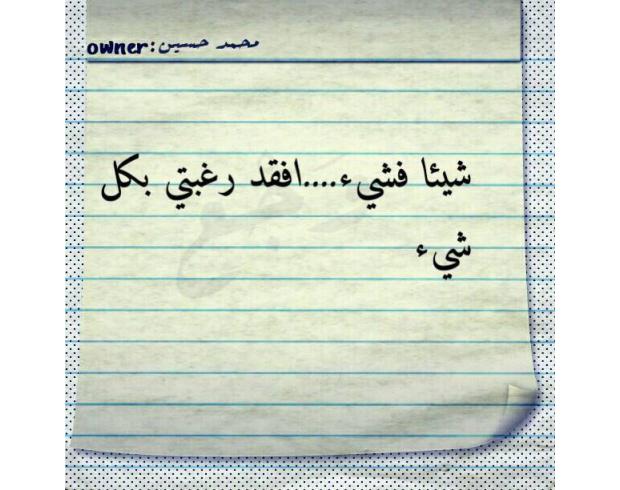 owner: محمد حسين
شيئا فشيء....افقد رغبتي بكل
شيء